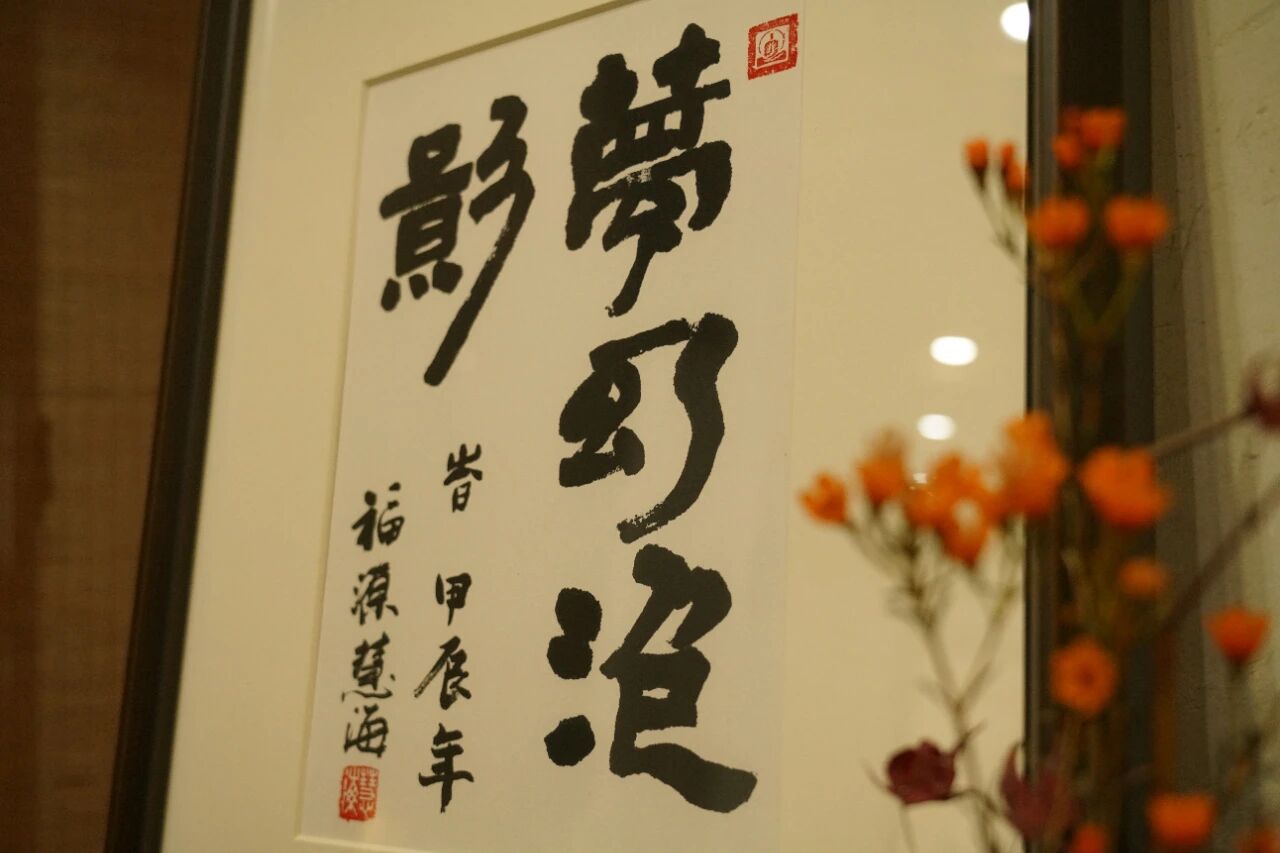 夢幻泡
影
旹 甲辰年
福源慧海